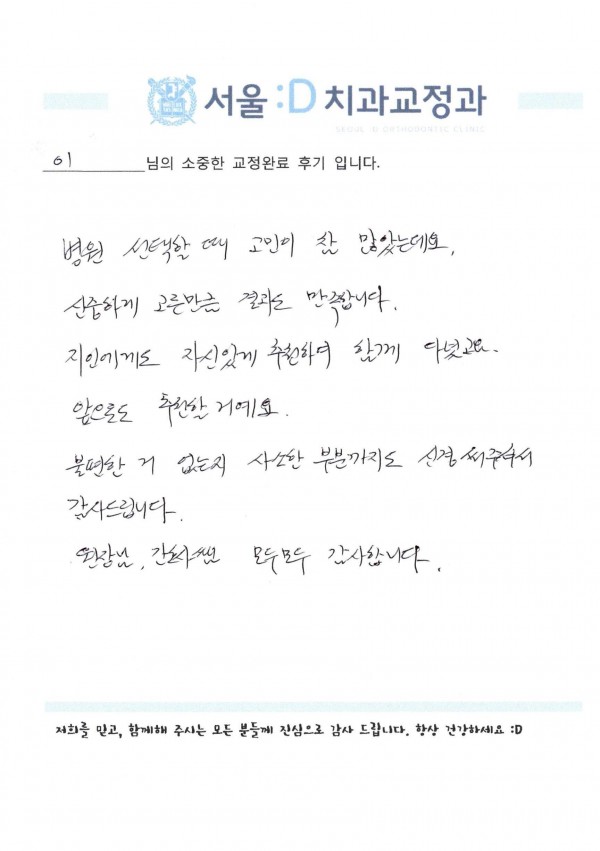 서울 :D 치과교정과
SEOUL :D ORTHODONTIC CLINIC
이 님의 소중한 교정완료 후기 입니다.
병원 선택할 때 고민이 참 많았는데요,
신중하게 고른만큼 결과도 만족합니다.
지인에게도 자신있게 추천하며 함께 다녔고요.
앞으로도 추천할 거예요.
불편한 거 없는지 사소한 부분까지도 신경써주셔서
감사드립니다.
원장님, 간호사쌤 모두모두 감사합니다.
저희를 믿고, 함께해 주시는 모든 분들께 진심으로 감사 드립니다. 항상 건강하세요 :D